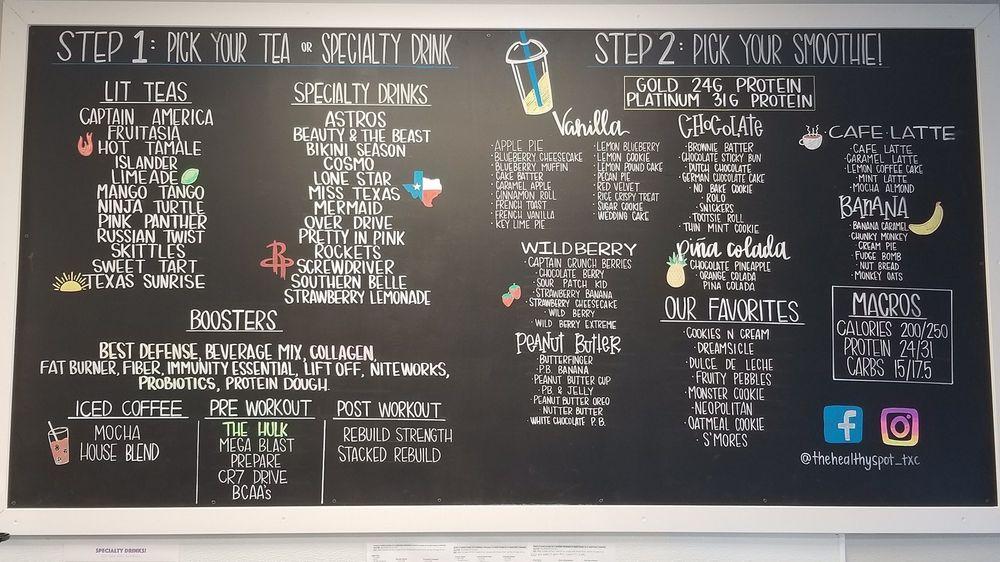 STEP 1: PICK YOUR TEA OR SPECIALTY DRINK
LIT TEAS
CAPTAIN AMERICA
FRUITASIA
HOT TAMALE
ISLANDER
LIMEADE
MANGO TANGO
NINJA TURTLE
PINK PANTHER
RUSSIAN TWIST
SKITTLES
SWEET TART
TEXAS SUNRISE
SPECIALTY DRINKS
ASTROS
BEAUTY & THE BEAST
BIKINI SEASON
COSMO
LONE STAR
MISS TEXAS
MERMAID
OVER DRIVE
PRETTY IN PINK
ROCKETS
SCREWDRIVER
SOUTHERN BELLE
STRAWBERRY LEMONADE
BOOSTERS
BEST DEFENSE, BEVERAGE MIX, COLLAGEN,
FAT BURNER, FIBER, IMMUNITY ESSENTIAL, LIFT OFF, NITEWORKS,
PROBIOTICS, PROTEIN DOUGH.
ICED COFFEE
MOCHA
HOUSE BLEND
PRE WORKOUT
THE HULK
MEGA BLAST
PREPARE
CR7 DRIVE
BCAA's
POST WORKOUT
REBUILD STRENGTH
STACKED REBUILD
STEP 2: PICK YOUR SMOOTHIE!
GOLD 24G PROTEIN
PLATINUM 31G PROTEIN
Vanilla
APPLE PIE
·BLUEBERRY CHEESECAKE
·BLUEBERRY MUFFIN
·CAKE BATTER
·CARAMEL APPLE
·CINNAMON ROLL
·FRENCH TOAST
·FRENCH VANILLA
·KEY LIME PIE
·LEMON BLUEBERRY
·LEMON COOKIE
·LEMON POUND CAKE
·PECAN PIE
·RED VELVET
·RICE CRISPY TREAT
·SUGAR COOKIE
·WEDDING CAKE
WILDBERRY
·CAPTAIN CRUNCH BERRIES
·CHOCOLATE BERRY
·SOUR PATCH KID
·STRAWBERRY BANANA
·STRAWBERRY CHEESECAKE
·WILD BERRY
·WILD BERRY EXTREME
PEANUT BUTTER
·BUTTERFINGER
·P.B. BANANA
·PEANUT BUTTER CUP
·P.B & JELLY
·PEANUT BUTTER OREO
·NUTTER BUTTER
·WHITE CHOCOLATE P.B.
CHOCOLATE
·BROWNIE BATTER
·CHOCOLATE STICKY BUN
·DUTCH CHOCOLATE
·GERMAN CHOCOLATE CAKE
·NO BAKE COOKIE
·ROLO
·SNICKERS
·TOOTSIE ROLL
·THIN MINT COOKIE
Piña colada
·CHOCOLATE PINEAPPLE
·ORANGE COLADA
·PINA COLADA
OUR FAVORITES
·COOKIES N CREAM
·DREAMSICLE
·DULCE DE LECHE
·FRUITY PEBBLES
·MONSTER COOKIE
·NEOPOLITAN
·OATMEAL COOKIE
·S'MORES
·CAFE·LATTE
·CAFE LATTE
·CARAMEL LATTE
·LEMON COFFEE CAKE
·MINT LATTE
·MOCHA ALMOND
BANANA
·BANANA CARAMEL
·CHUNKY MONKEY
·CREAM PIE
·FUDGE BOMB
·NUT BREAD
·MONKEY OATS
MACROS
CALORIES 200/250
PROTEIN 24/31
CARBS 15/17.5
@thehealthyspot_txc
SPECIALTY DRINKS!